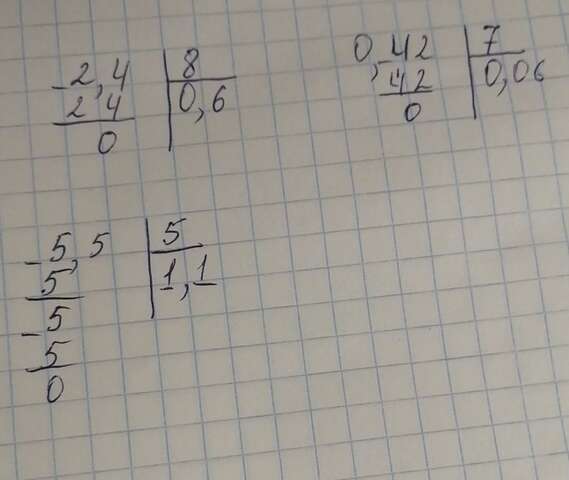 2,4 | 8
- 24 | 0,6
0
0,42 | 7
- 42 | 0,06
0
5,5 | 5
- 5 | 1,1
5
- 5
0